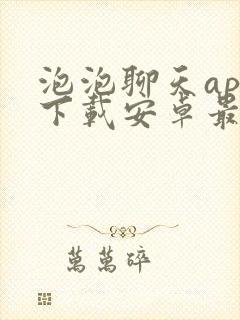 泡泡聊天ap
下載安卓最
萬萬碎